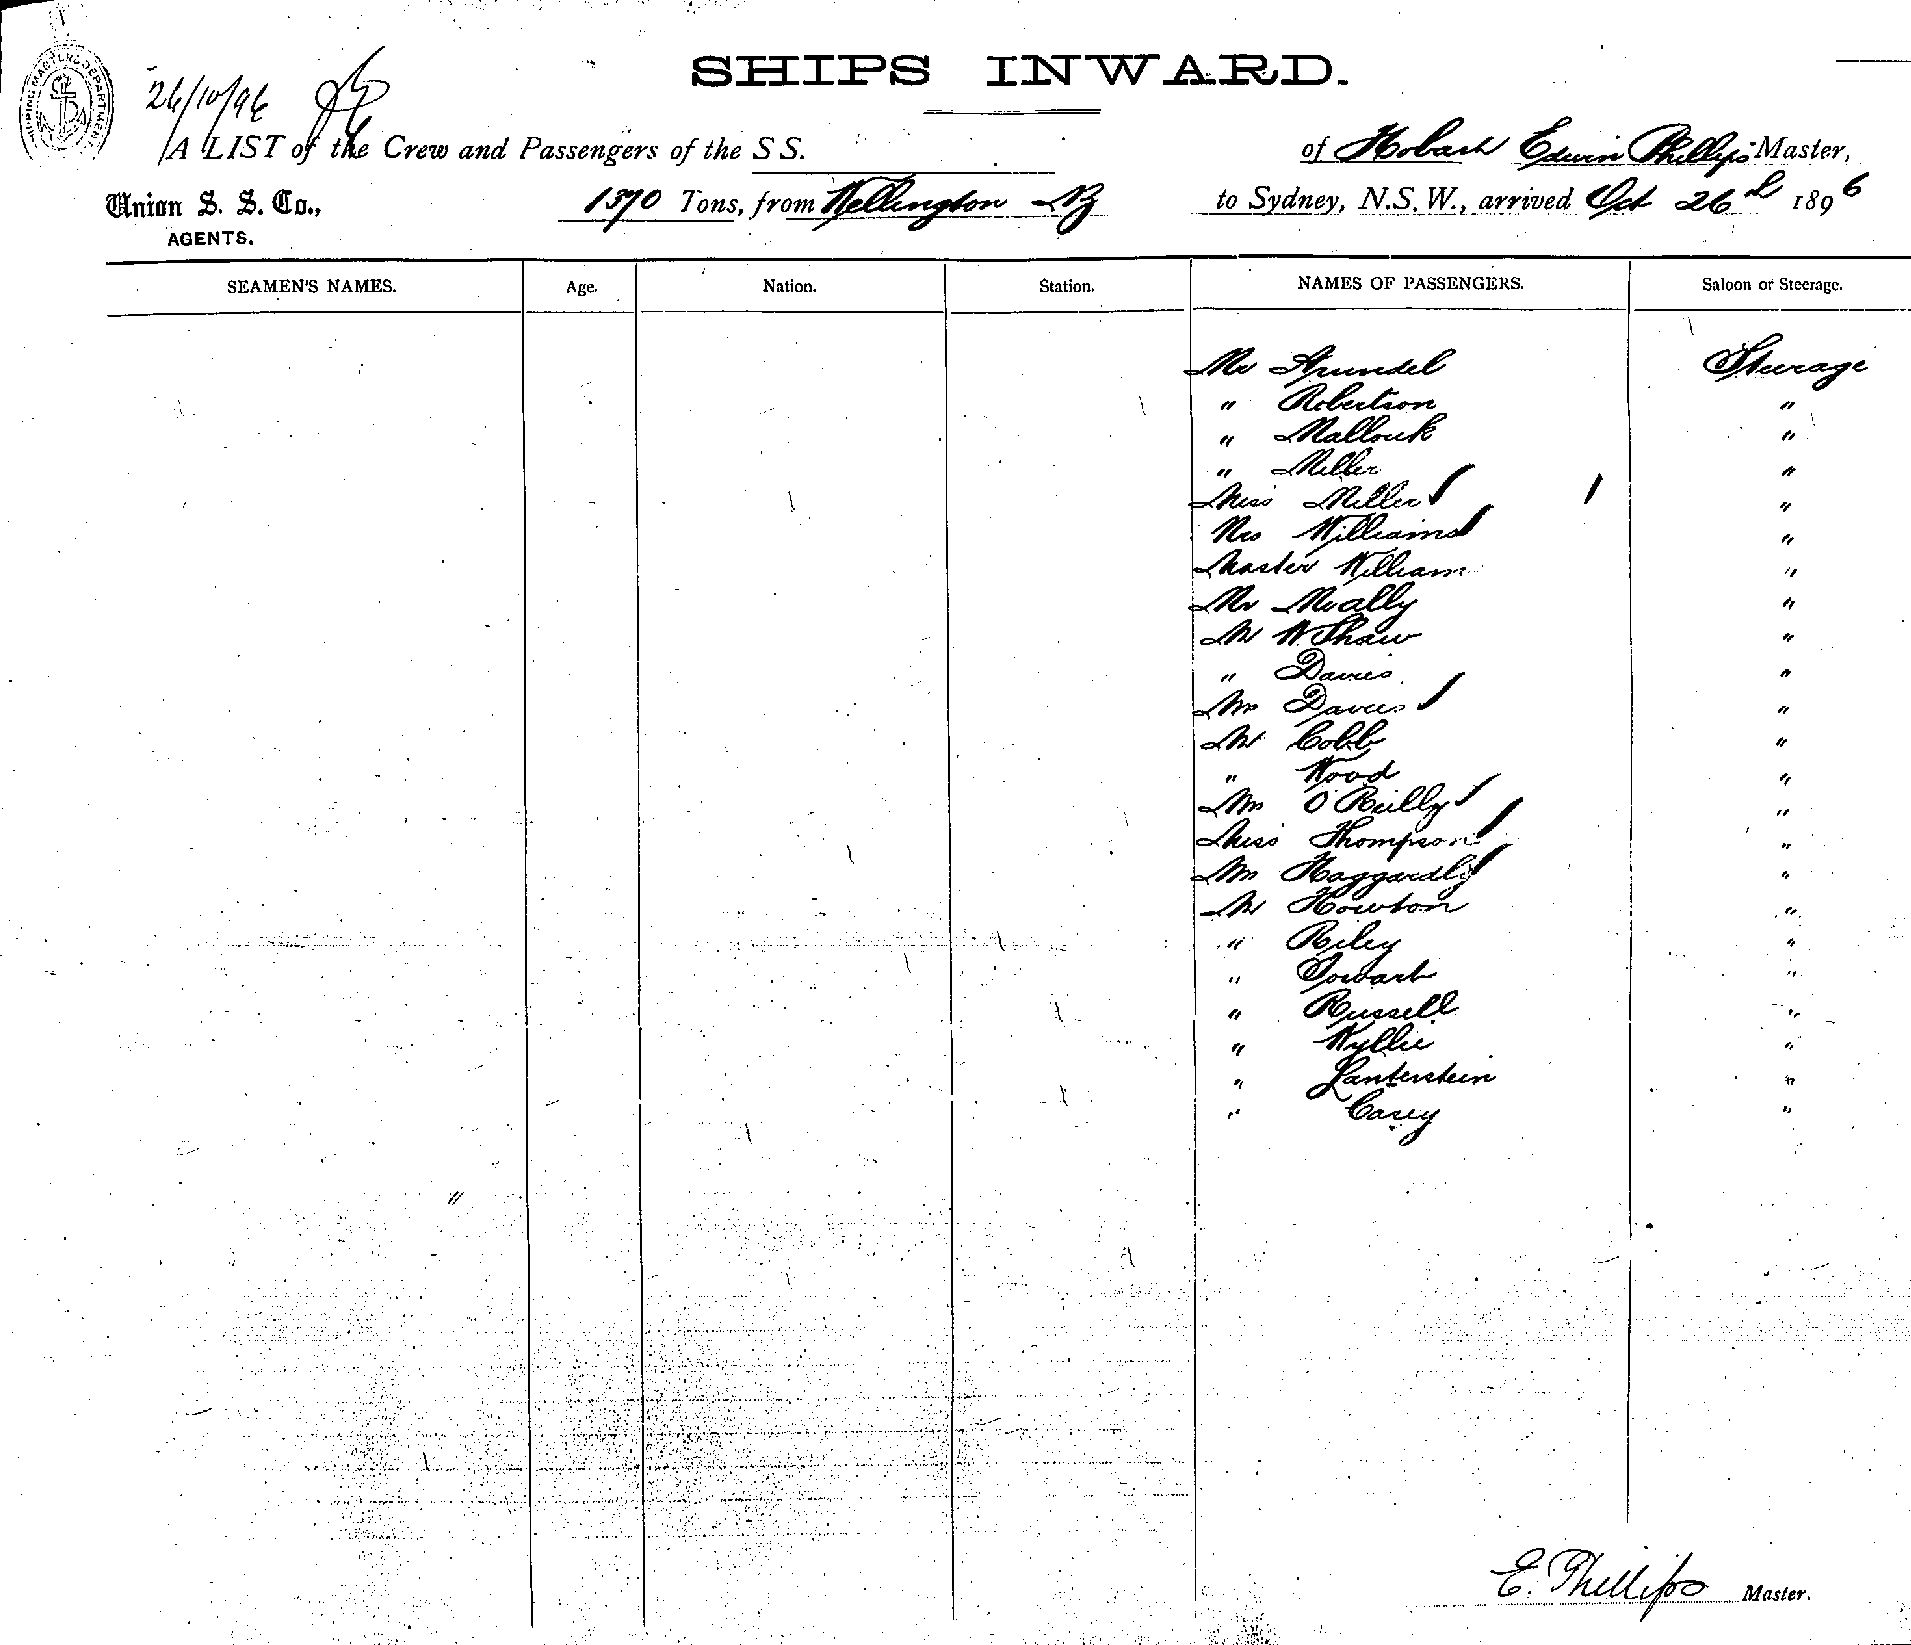 SHIPS INWARD.
26/10/96
A LIST of the Crew and Passengers of the S S. of Hobart Edwin Phillips Master,
Union S. S. Co., 1370 Tons, from Wellington NZ to Sydney, N.S.W., arrived Oct 26th 1896
AGENTS.
SEAMEN'S NAMES. Age. Nation. Station. NAMES OF PASSENGERS. Saloon or Steerage.
Mr Arundel Steerage
" Robertson "
" Mallouk "
" Miller "
Miss Miller "
Mrs Williams "
Master William "
Mr "
Mr W Shaw "
" Davies "
Mrs Davies "
Mr Cobb "
" Wood "
Mrs O'Reilly "
Miss Thompson "
Mrs Haggardly "
Mr Howton "
" Riley "
" "
" Russell "
" Wyllie "
" Lanterstein "
" Casey "
"
E. Phillips Master.